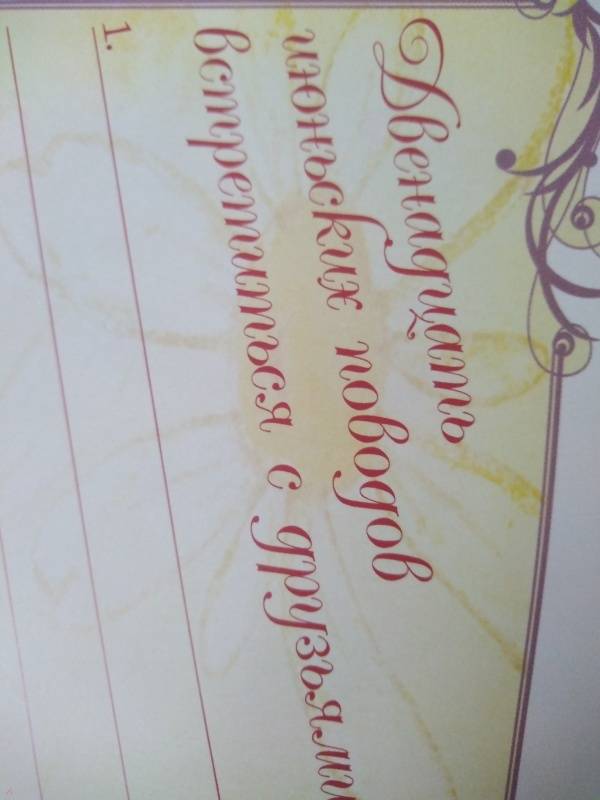 Двенадцать
июньских поводов
встретиться с друзьями
1.